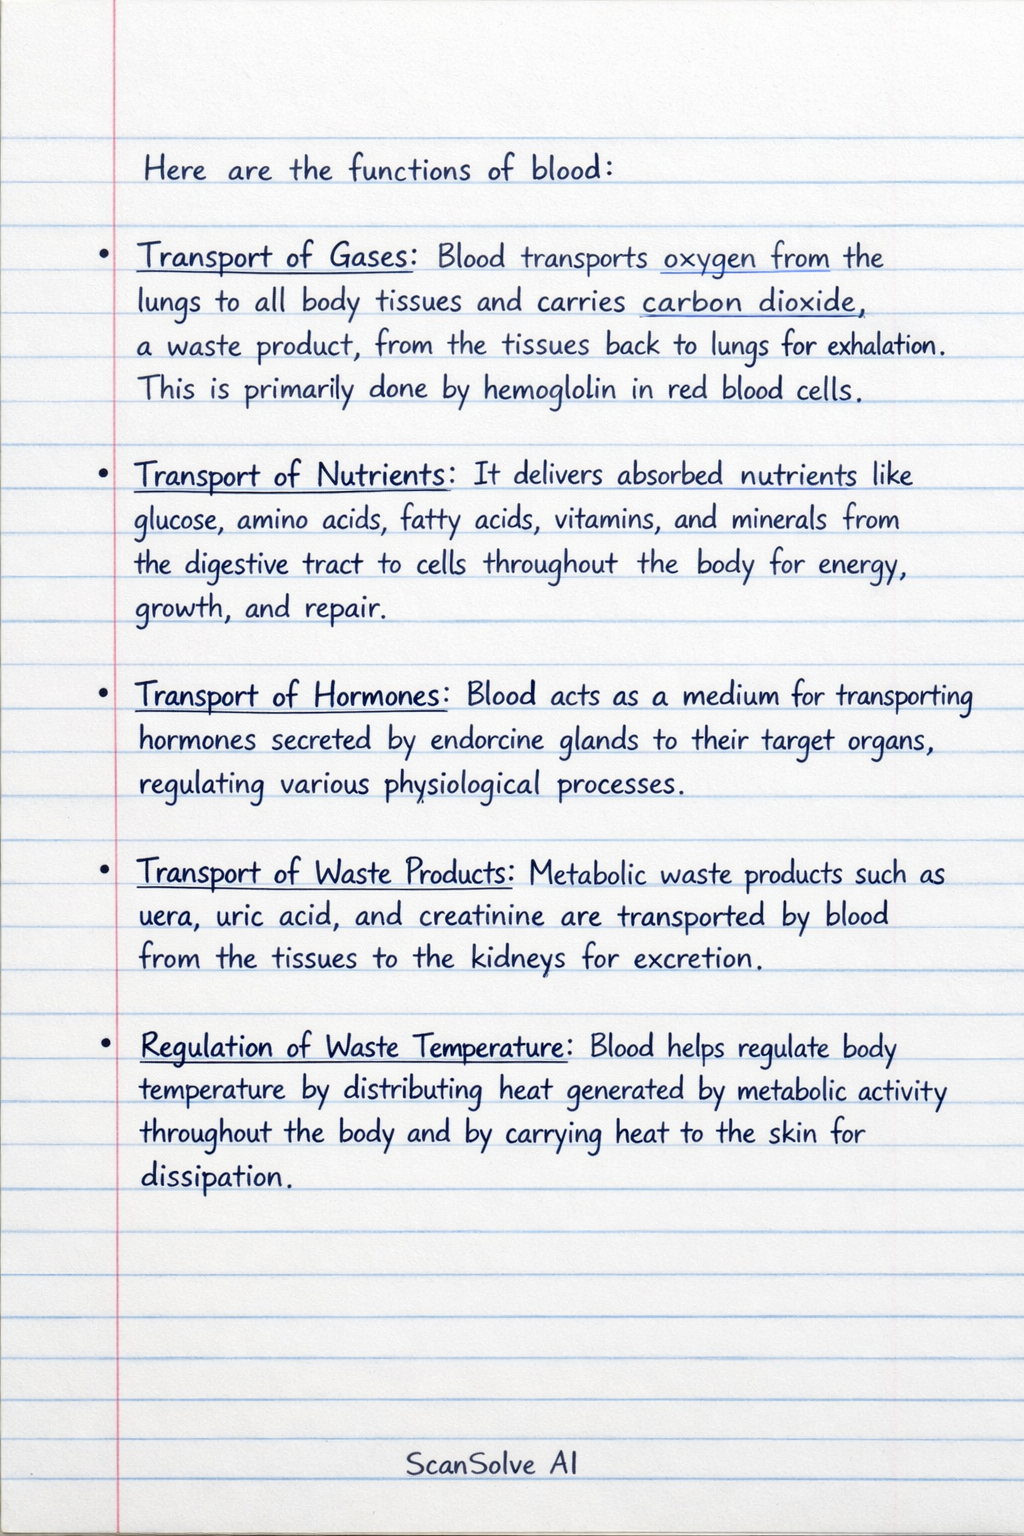 Here are the functions of blood:
• Transport of Gases: Blood transports oxygen from the
lungs to all body tissues and carries carbon dioxide,
a waste product, from the tissues back to lungs for exhalation.
This is primarily done by hemoglolin in red blood cells.
• Transport of Nutrients: It delivers absorbed nutrients like
glucose, amino acids, fatty acids, vitamins, and minerals from
the digestive tract to cells throughout the body for energy,
growth, and repair.
• Transport of Hormones: Blood acts as a medium for transporting
hormones secreted by endorcine glands to their target organs,
regulating various physiological processes.
• Transport of Waste Products: Metabolic waste products such as
uera, uric acid, and creatinine are transported by blood
from the tissues to the kidneys for excretion.
• Regulation of Waste Temperature: Blood helps regulate body
temperature by distributing heat generated by metabolic activity
throughout the body and by carrying heat to the skin for
dissipation.
ScanSolve AI